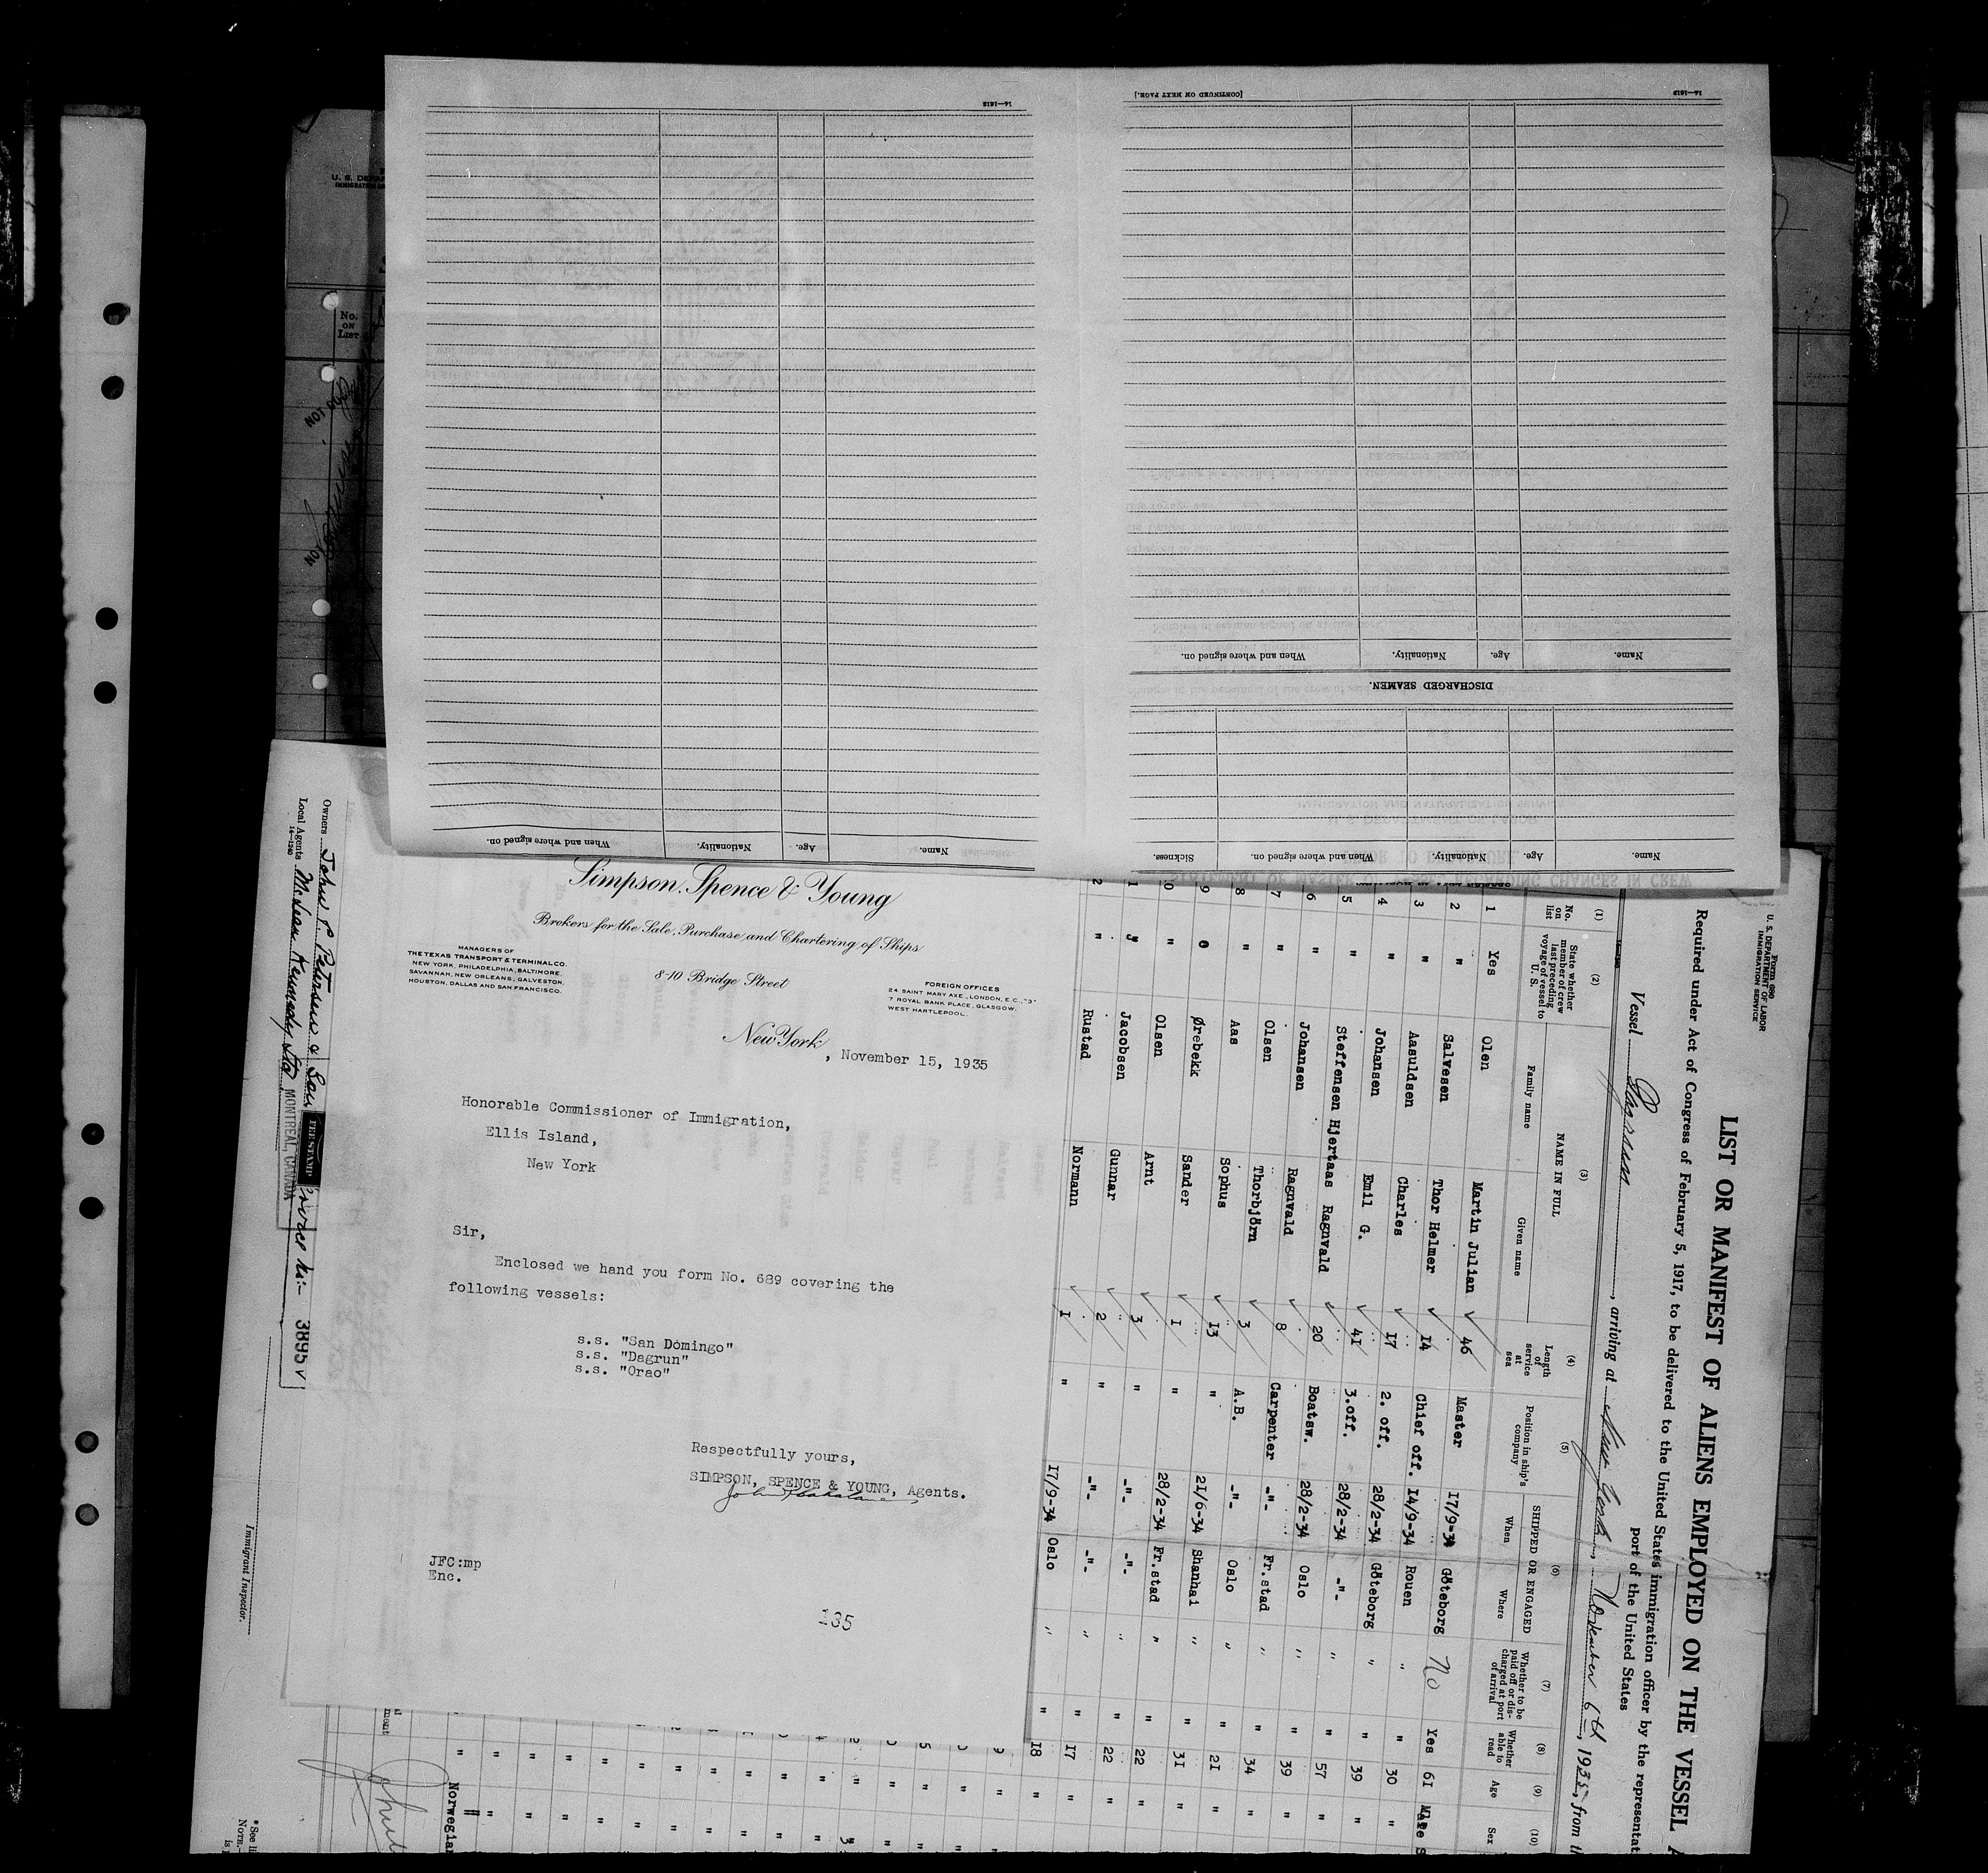 14—1618
[CONTINUED ON NEXT PAGE.]
14—1618
Name. Age. Nationality. When and where signed on.
DISCHARGED SEAMEN.
Name. Age. Nationality. When and where signed on. Sickness.
Name. Age. Nationality. When and where signed on.
STATEMENT OF MASTER OF VESSEL REGARDING CHANGES IN CREW
No.
ON
LIST
Simpson, Spence & Young
Brokers for the Sale, Purchase and Chartering of Ships
8-10 Bridge Street
MANAGERS OF
THE TEXAS TRANSPORT & TERMINAL CO.
NEW YORK, PHILADELPHIA, BALTIMORE,
SAVANNAH, NEW ORLEANS, GALVESTON,
HOUSTON, DALLAS AND SAN FRANCISCO.
FOREIGN OFFICES
24 SAINT MARY AXE, LONDON, E.C., "3"
7 ROYAL BANK PLACE, GLASGOW.
WEST HARTLEPOOL.
New York, November 15, 1935
Honorable Commissioner of Immigration,
Ellis Island,
New York
Sir,
Enclosed we hand you form No. 689 covering the
following vessels:
s.s. "San Domingo"
s.s. "Dagrun"
s.s. "Orao"
Respectfully yours,
SIMPSON, SPENCE & YOUNG, Agents.
JFC:mp
Enc.
135
Form 680
U. S. DEPARTMENT OF LABOR
IMMIGRATION SERVICE
LIST OR MANIFEST OF ALIENS EMPLOYED ON THE VESSEL
Required under Act of Congress of February 5, 1917, to be delivered to the United States immigration officer by the representat
port of the United States
Vessel Dagrun, arriving at New York, November 6th, 1935, from th
(1) (2) (3) (4) (5) (6) (7) (8) (9) (10)
No. on list
State whether member of crew last preceding voyage of vessel to U. S.
NAME IN FULL
Family name Given name
Length of service at sea
Position in ship's company
SHIPPED OR ENGAGED
When Where
Whether to be paid off or discharged at port of arrival
Whether able to read
Age
Sex
1 Yes Olen Martin Julian 46 Master 17/9-34 Göteborg No Yes 61 Male
2 " Salvesen Thor Helmer 14 Chief off. 14/9-34 Rouen " " 30 "
3 " Aasuldsen Charles 17 2. off. 28/2-34 Göteborg " " 39 "
4 " Johansen Emil G. 41 3.off. 28/2-34 -"- " " 57 "
5 " Steffensen Hjertaas Ragnvald 20 Boatsw. 28/2-34 Oslo " " 39 "
6 " Johansen Ragnvald 8 Carpenter -"- Fr.stad " " 34 "
7 " Olsen Thorbjörn 3 A.B. -"- Oslo " " 21 "
8 " Aas Sophus 13 " 21/6-34 Shanhai " " 31 "
9 Ørebekk Sander 1 " 28/2-34 Fr.stad " " 22 "
0 " Olsen Arnt 3 " -"- -"- " " 22 "
1 " Jacobsen Gunnar 2 " -"- -"- " " 17 "
2 " Rustad Normann 1 " 17/9-34 Oslo " " 18 "
Norwegian
Owners John P. Pedersen & Son
Local Agents McLean Kennedy Ltd
14—1240
FEE STAMP
MONTREAL, CANADA
3895
Immigrant Inspector.
* See
NOTE.—